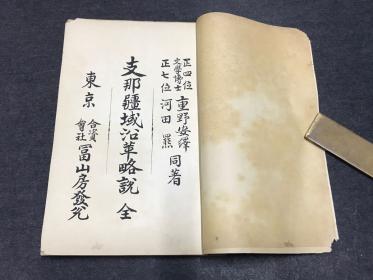 正四位
文學博士 重野安繹
正七位 河田羆 同著
支那疆域沿革略說 全
東京 合資會社 冨山房發兌